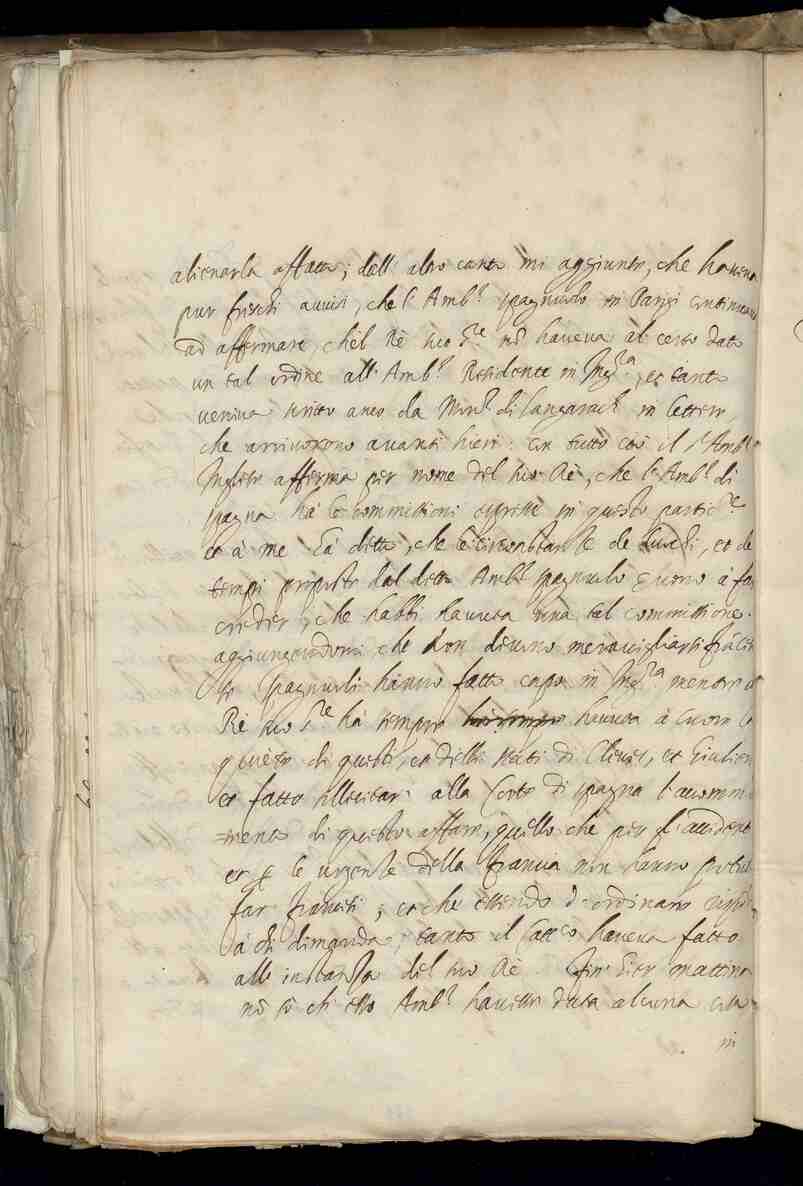 alienarla affatto; dall' altro canto mi aggiunto, che haveva
pur freschi avvisi, che l' Amb.r spagnuolo in Parigi continuava
ad affermare, che'l Rè suo S.re nõ haveva al certo dato
un tal ordine all' Amb.r Residente in Ing.ra, et tanto
veniva scritto anco da Mons.r di Langarach in lettere,
che arrivorono avanti hieri: con tutto ciò il s.r Amb.r
Inglese afferma per nome del suo Rè, che l' Amb.r di
spagna hà le commissioni espresse in questo partic.re
et à me hà detto, che le circonstantie de luochi, et de
tempi proposte dal detto Amb.r spagnuolo
creder, che habbi havuta una tal commissione.
aggiungendomi che non devono meravigliarsi
li Spagnuoli hanno fatto capo in Ing.ra mentre il
Rè suo S.re hà sempre havuta à cuore la
quiete di questi, et delli stati di Cleves, et Giulien
et fatto sollecitar alla Corte di spagna l' accommo
=mento di questo affare, quello che per l' accident
et le urgente della francia non hanno potuto
far francesi; et che essendo d' ordinario
à chi dimanda, tanto il Catt.co haveva fatto
alle instanza del suo Rè. fin' hier mattina
nõ sò ch' esso Amb.r havesse data alcuna
in